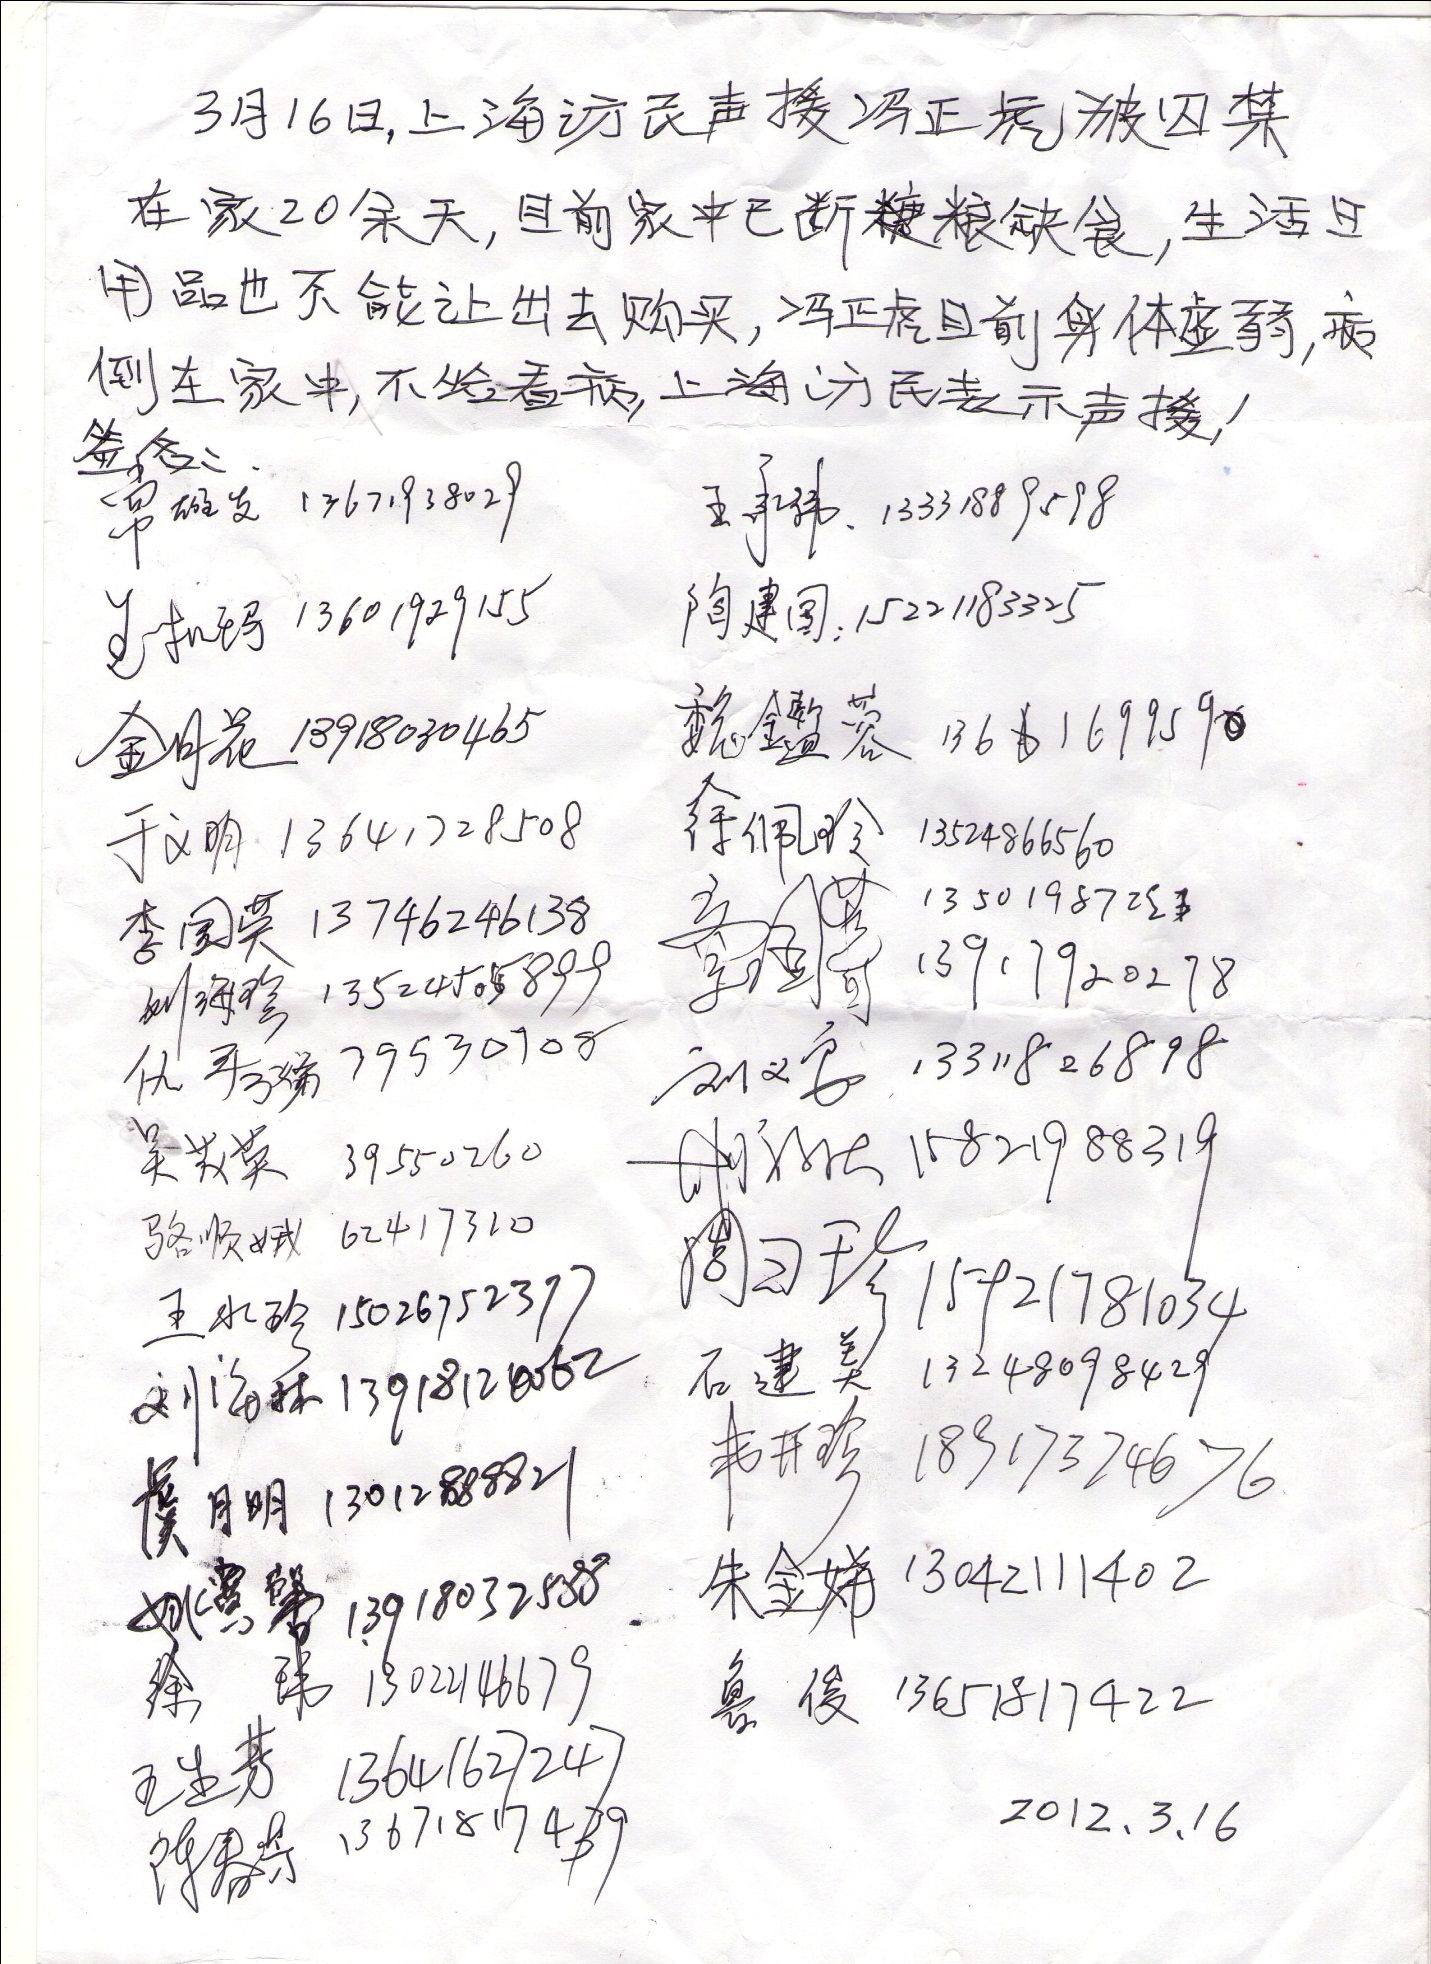 3月16日,上海访民声援冯正虎被囚禁
在家20余天,目前家中已断糖粮缺食,生活日
用品也不能让出去购买,冯正虎目前身体虚弱,病
倒在家中,不给看病,上海访民表示声援!
签名:
雄发 13671938029
王承玮. 13331889598
13601929155
陶建国:15221183325
金月花 13918030465
魏鑑蓉 1361699590
于文明 13641728508
徐佩玲 13524866560
李国英 13746246138
135019872
刘海珍 13524505899
13917920278
仇 娣 79530708
刘文 13311826898
吴英 39550260
15821988319
骆顺娥 62417310
周 珍 15921781034
王水珍 15026752377
石建美 13248098429
刘海林 139181262
韦开珍 18917374676
虞月明 13012888821
朱金娣 13042111402
姚 馨 13918032588
鲁俊 13651817422
徐 玮 13022146679
王生芳 13641627247
陈春 13671817439
2012.3.16